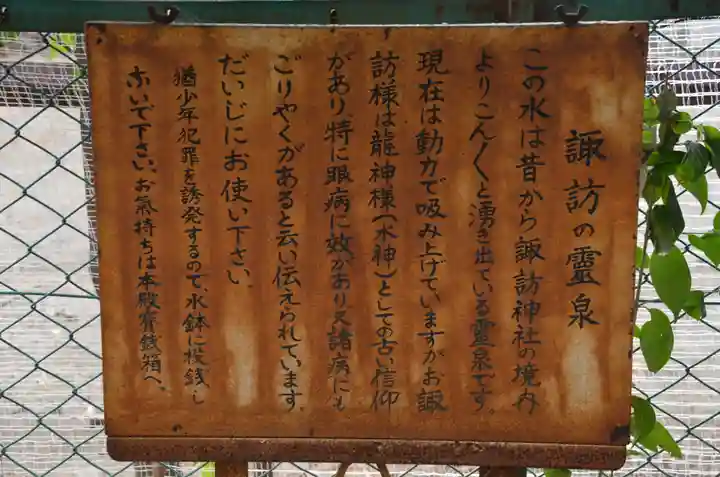 諏訪の靈泉
この水は昔から諏訪神社の境内
よりこん〳〵と湧き出ている靈泉です。
現在は動力で吸み上げていますがお諏
訪様は龍神様(水神)としての古い信仰
があり、特に眼病に効があり又諸病にも
ごりやくがあると云い伝えられています。
だいじにお使い下さい。
猶少年犯罪を誘発するので、水鉢に投銭し
ないで下さい。お氣持ちは本殿賽銭箱へ。